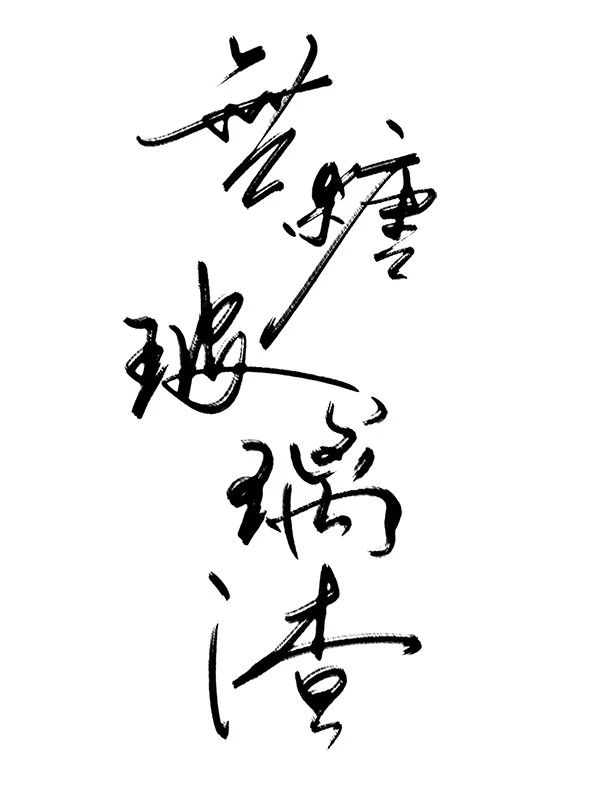 無糖玻璃渣